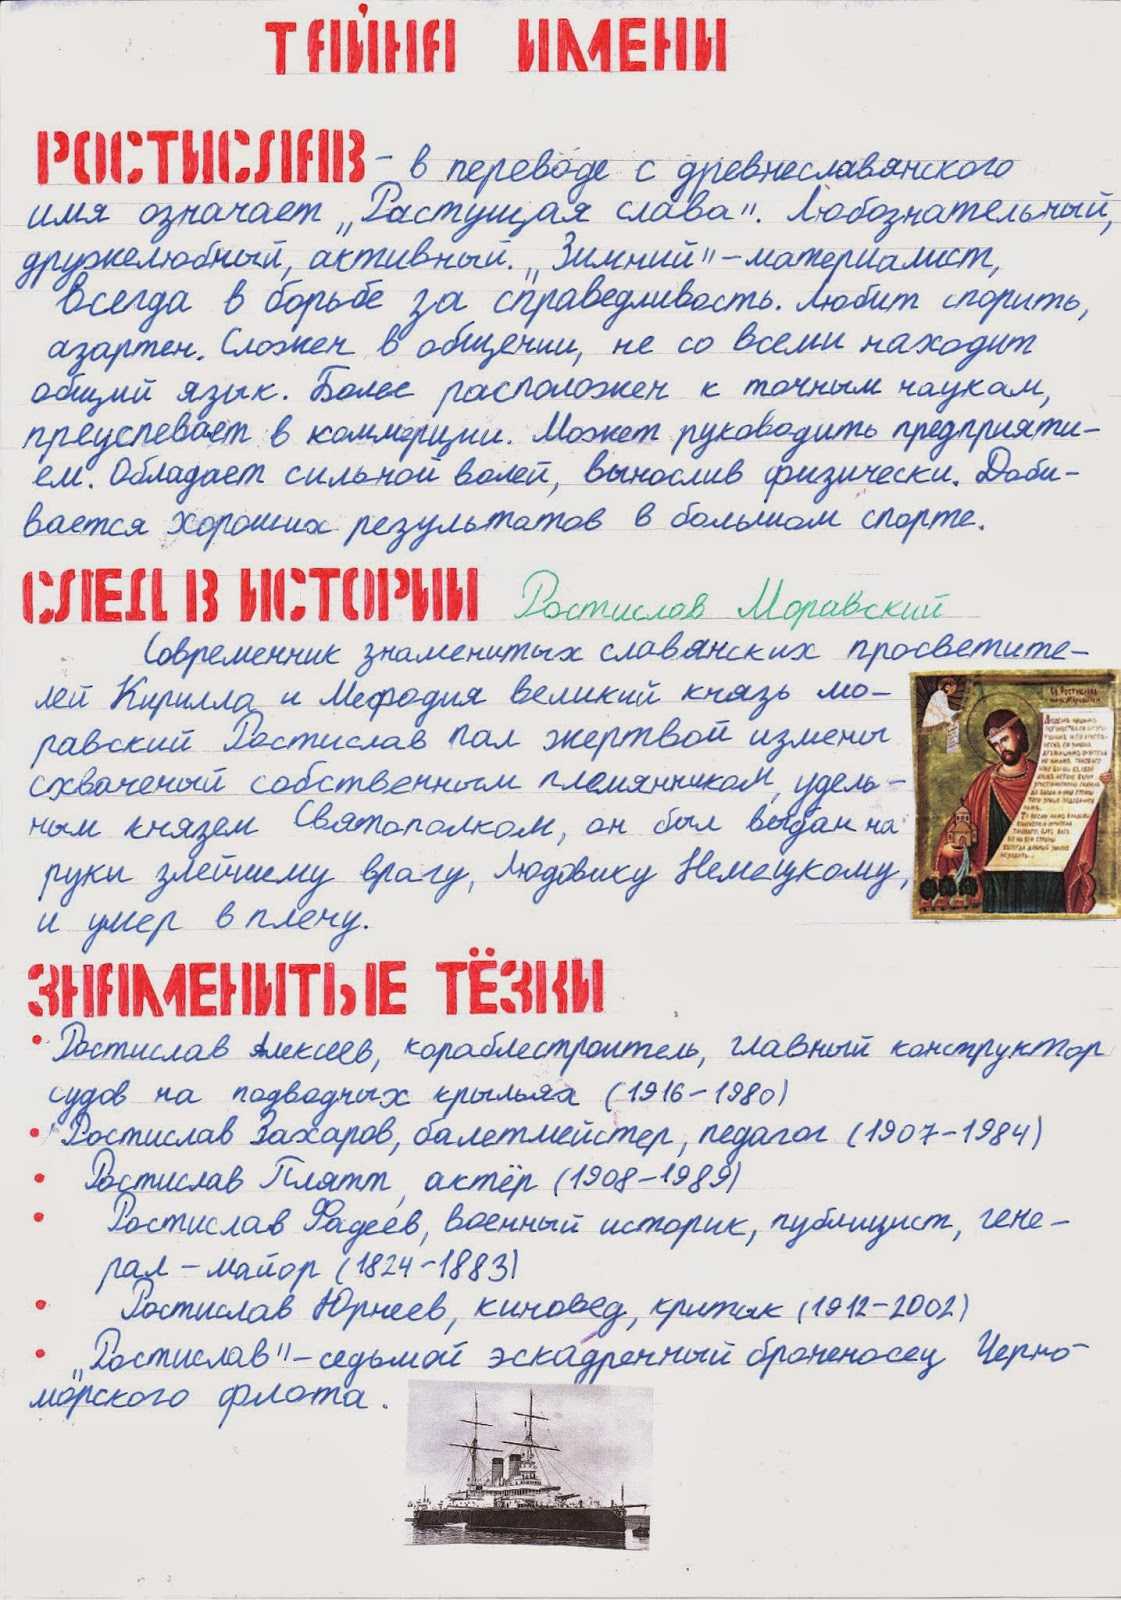 ТАЙНА ИМЕНИ
РОСТИСЛАВ - в переводе с древнеславянского
имя означает „Растущая слава". Любознательный,
дружелюбный, активный. „Зимний" - материалист,
всегда в борьбе за справедливость. Любит спорить,
азартен. Сложен в общении, не со всеми находит
общий язык. Более расположен к точным наукам,
преуспевает в коммерции. Может руководить предприяти-
ем. Обладает сильной волей, вынослив физически. Доби-
вается хороших результатов в большом спорте.
СЛЕД В ИСТОРИИ Ростислав Моравский
Современник знаменитых славянских просветите-
лей Кирилла и Мефодия великий князь мо-
равский Ростислав пал жертвой измены
схваченый собственным племянником, удель-
ным князем Святополком, он был выдан на
руки злейшему врагу, Людовику Немецкому,
и умер в плену.
ЗНАМЕНИТЫЕ ТЁЗКИ
• Ростислав Алексеев, кораблестроитель, главный конструктор
судов на подводных крыльях (1916-1980)
• Ростислав Захаров, балетмейстер, педагог (1907-1984)
• Ростислав Плятт, актёр (1908-1989)
• Ростислав Фадеев, военный историк, публицист, гене-
рал-майор (1824-1883)
• Ростислав Юрнеев, киновед, критик (1912-2002)
• „Ростислав" - седьмой эскадренный броненосец Черно-
морского флота.